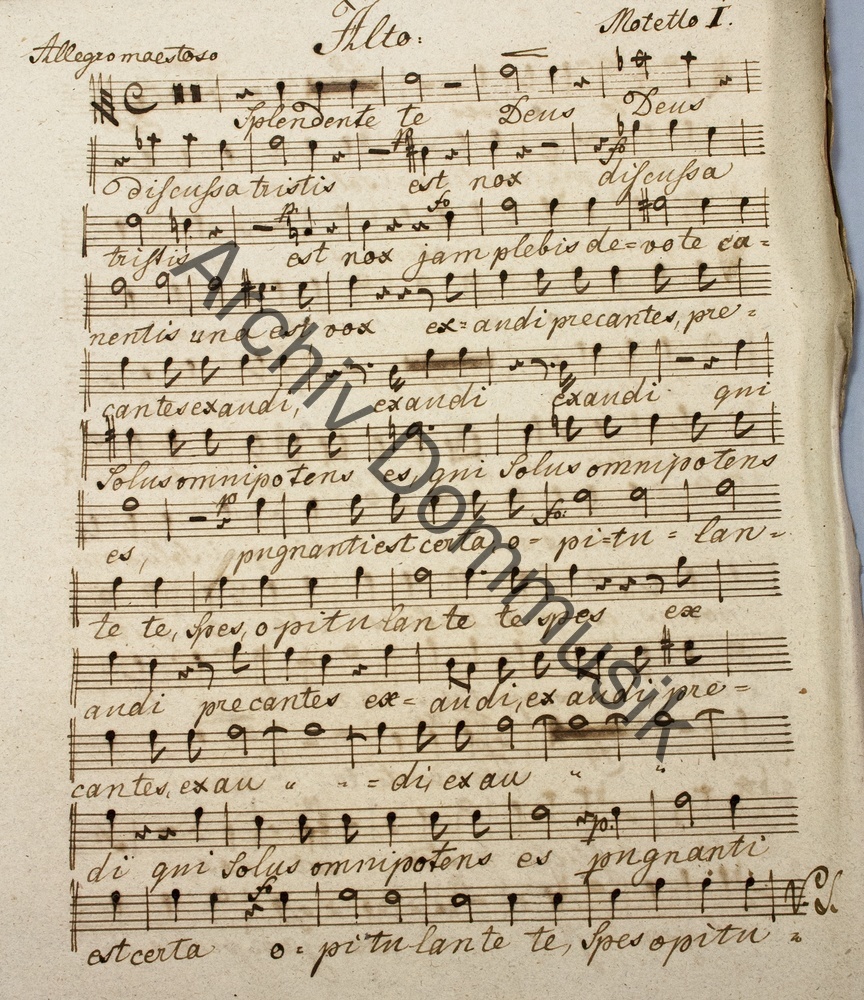 Alto:
Motetto I.
Allegro maestoso
Splendente te Deus Deus
p
fo
discussa tristis est nox discussa
p.
fo
tristis est nox jam plebis de=vote ca=
nentis una est vox ex=audi precantes, pre=
cantes exaudi, exaudi exaudi qui
solus omnipotens es, qui solus omnipotens
p
fo:
es, pugnanti est certa, o= pi=tu=lan=
te te, spes, opitulante te spes ex
audi precantes ex=audi, ex audi, pre=
cantes, exau " " =di, exau " "
p.
di qui solus omnipotens es pugnanti
fo
V.S.
est certa o=pitulante te, spes opitu=
Archiv Dommusik